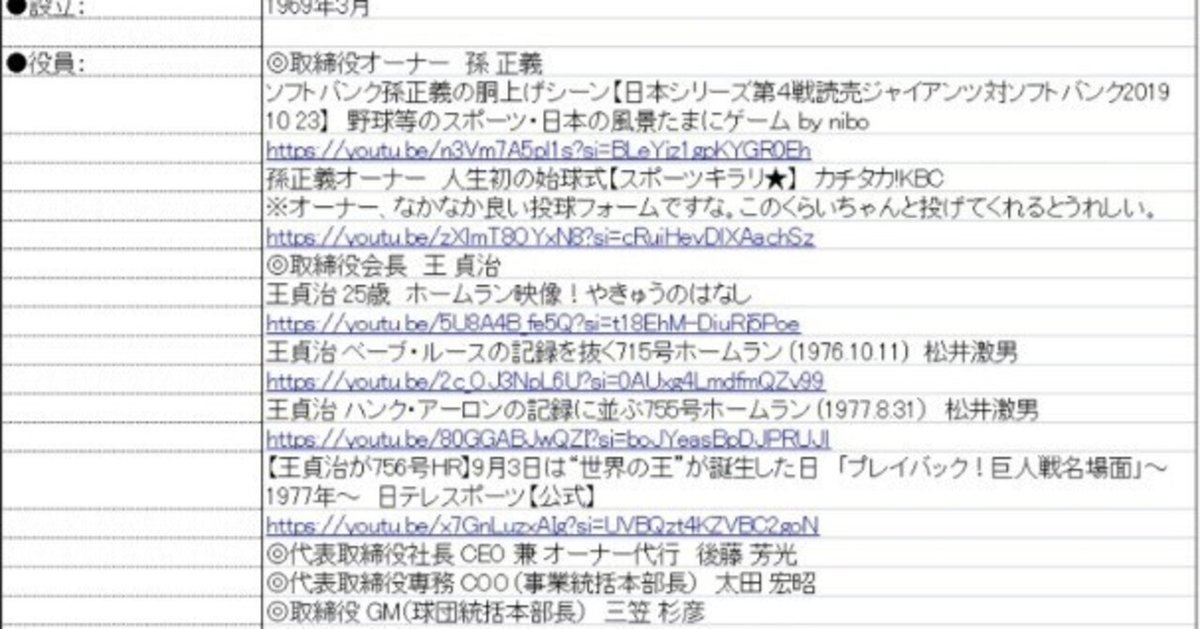 ●設立：
1969年3月
●役員：
◎取締役オーナー　孫 正義
ソフトバンク孫正義の胴上げシーン【日本シリーズ第4戦読売ジャイアンツ対ソフトバンク2019
10 23】　野球等のスポーツ・日本の風景たまにゲーム by nibo
https://youtu.be/n3Vm7A5pl1s?si=BLeYjz1gpKYGR0Eh
孫正義オーナー　人生初の始球式【スポーツキラリ★】　カチタカ!KBC
※オーナー、なかなか良い投球フォームですな。このくらいちゃんと投げてくれるとうれしい。
https://youtu.be/zXImT8OYxN8?si=cRuiHevDIXAachSz
◎取締役会長　王 貞治
王貞治 25歳　ホームラン映像！やきゅうのはなし
https://youtu.be/5U8A4B_fe5Q?si=t18EhM-DiuRj5Poe
王貞治 ベーブ・ルースの記録を抜く715号ホームラン（1976.10.11）　松井激男
https://youtu.be/2c_OJ3NpL6U?si=0AUxg4LmdfmQZv99
王貞治 ハンク・アーロンの記録に並ぶ755号ホームラン（1977.8.31）　松井激男
https://youtu.be/80GGABJwQZI?si=boJYeasBpDJPRUJI
【王貞治が756号HR】9月3日は“世界の王”が誕生した日　「プレイバック！巨人戦名場面」～
1977年～　日テレスポーツ【公式】
https://youtu.be/x7GnLuzxAlg?si=UVBQzt4KZVBC2goN
◎代表取締役社長 CEO 兼 オーナー代行　後藤 芳光
◎代表取締役専務 COO（事業統括本部長）　太田 宏昭
◎取締役 GM（球団統括本部長）　三笠 杉彦